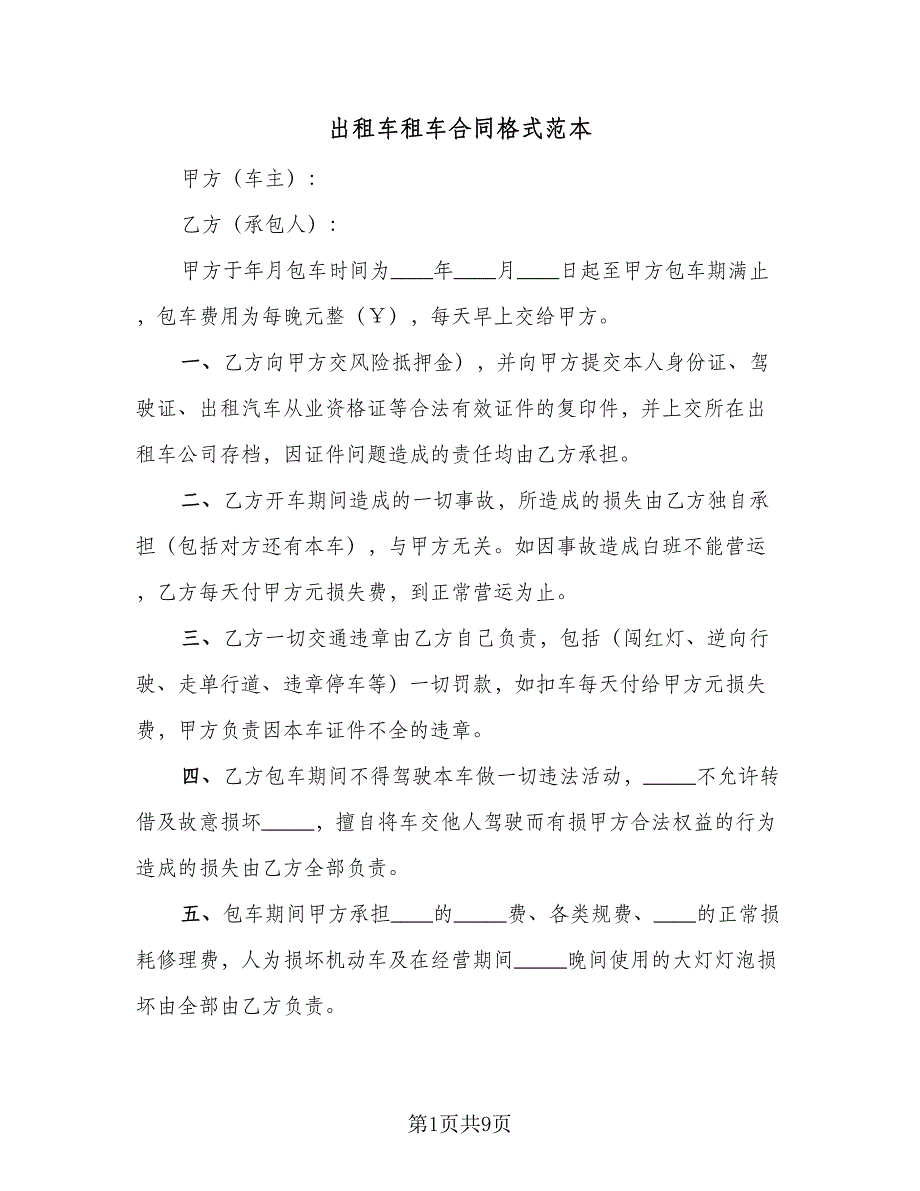 出租车租车合同格式范本
甲方（车主）：
乙方（承包人）：
甲方于年月包车时间为____年____月____日起至甲方包车期满止
，包车费用为每晚元整（￥），每天早上交给甲方。
一、乙方向甲方交风险抵押金），并向甲方提交本人身份证、驾
驶证、出租汽车从业资格证等合法有效证件的复印件，并上交所在出
租车公司存档，因证件问题造成的责任均由乙方承担。
二、乙方开车期间造成的一切事故，所造成的损失由乙方独自承
担（包括对方还有本车），与甲方无关。如因事故造成白班不能营运
，乙方每天付甲方元损失费，到正常营运为止。
三、乙方一切交通违章由乙方自己负责，包括（闯红灯、逆向行
驶、走单行道、违章停车等）一切罚款，如扣车每天付给甲方元损失
费，甲方负责因本车证件不全的违章。
四、乙方包车期间不得驾驶本车做一切违法活动，_____不允许转
借及故意损坏_____，擅自将车交他人驾驶而有损甲方合法权益的行为
造成的损失由乙方全部负责。
五、包车期间甲方承担____的_____费、各类规费、____的正常损
耗修理费，人为损坏机动车及在经营期间_____晚间使用的大灯灯泡损
坏由全部由乙方负责。
第1页共9页